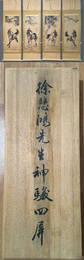 徐悲鴻先生神駿四屏